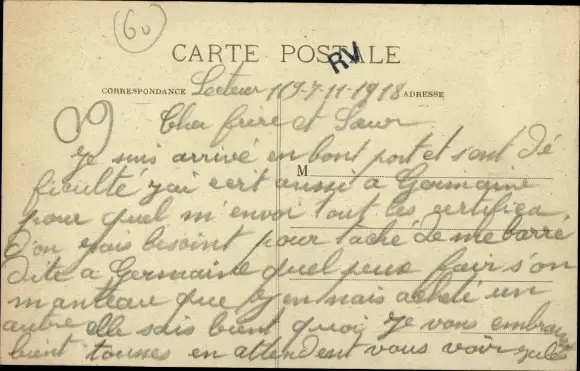 (60)
CARTE POSTALE
RV
CORRESPONDANCE
ADRESSE
Secteur 119-7-11-1918
Cher frère et Sœur
Je suis arrivé en bont port et sant dé
ficulté j'ai ecrt aussi a Germaine
M
pour quel m'envoi tout les certifica
d'on jais besoint pour taché de me barré
dite a Germaine quel peux fair s'on
manteau que j'en nais acheté un
autre elle sais bient quoi Je vous embrasse
bient tousses en attendent vous voir